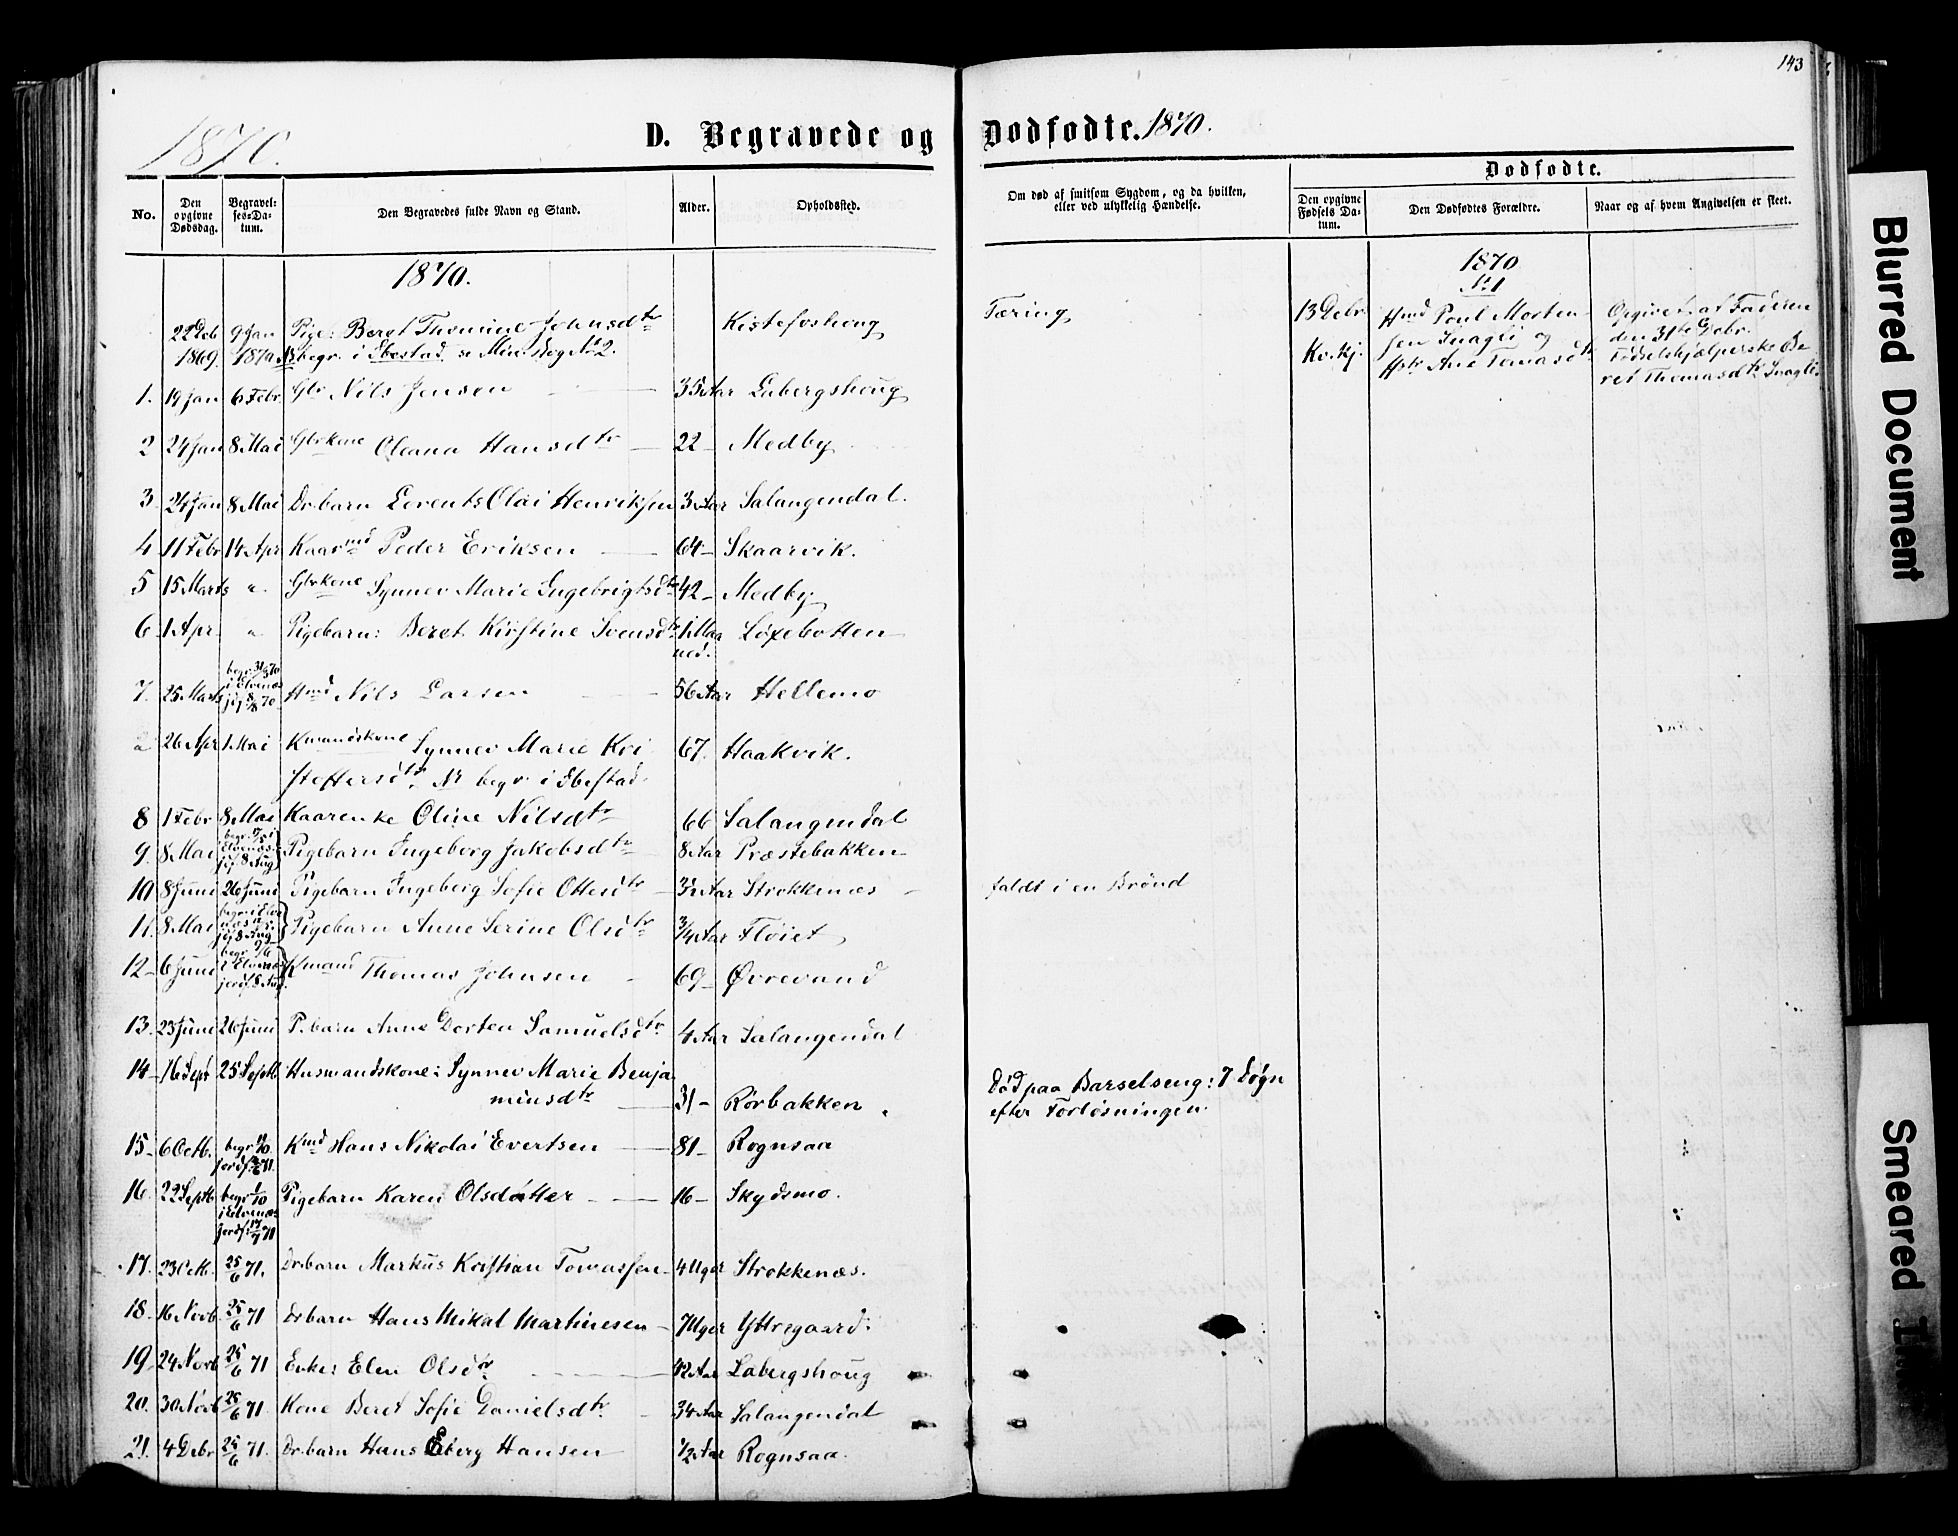 143
1870. D. Begravede og Dødfødte. 1870.
No. Den opgivne Dødsdag. Begravelses-Datum. Den Begravedes fulde Navn og Stand. Alder. Opholdsted. Om død af smitsom Sygdom, og da hvilken, eller ved ulykkelig Hændelse.
Dødfødte.
Den opgivne Fødsels Datum. Den Dødfødtes Forældre. Naar og af hvem Angivelsen er skeet.
1870.
22 Deb 9 Jan Pige: Beret Thomine Johnsdtr Kistefoshoug Tæring
1869. 1870 NB begr. i Ibestad se Min. bog No 2.
1. 19 Jan 6 Febr. Gbr Nils Jensen 35 Aar Labergshoug
2 24 Jan 8 Mai Gbrkone Oleana Hansdtr 22 - Medby
3 24 Jan 8 Mai Drbarn Lorents Olai Henriksen 3 Aar Salangendal.
4 11 Febr 14 Apr Kaarmd Peder Eriksen 64 - Skaarvik.
5 15 Marts " Gbrkone Synnev Marie Ingebrigtsdtr 42 - Medby
6 1 Apr. " Pigebarn: Beret Kirstine Svensdtr 1 Maa Løxebotten
ned.
begr. 31/3 70
i Elvenæs
7. 25 Marts jf 8/8 70 Hmd Nils Larsen 56 Aar Hellemo
a 26 Apr 1 Mai Kmandskone Synnev Marie Kri 67. Haakvik.
stoffersdtr. NB begr. i Ibestad.
8 1 Febr 8 Mai Kaarenke Oline Nilsdtr 66 Salangendal
begr. i
Elvenæs
9. 8 Mai jf 8 Aug Pigebarn Ingeborg Jakobsdtr 8 Aar Præstebakken
10 8 Juni 26 Juni Pigebarn Ingeborg Sofie Ottesdtr 3½ Aar Strokkenæs - faldt i en Brønd
begr. i Elve
næs
11. 8 Mai jf 8 Aug Pigebarn Anne Serine Olsdtr 3/4 Aar Fløiet
begr. 9/6
i Elvenæs
12 - 6 Juni jordf. 8 Aug. Kmand Thomas Johnsen 69 - Øvrevand
13. 23 Juni 26 Juni P.barn Anne Dorten Samuelsdtr 4 Aar Salangendal
14 - 16 Sept 25 Septb Husmandskone: Synnev Marie Benja Død paa Barselseng: 7 Døgn
minsdtr 31 - Rørbakken. efter Forløsningen.
15 - 6 Octb. begr. Kmd Hans Nikolai Evertsen 81 - Rognsaa
jordf. 71.
16. 22 Septb begr. 1/10 Pigebarn Karen Olsdatter 16 - Skydsmo.
i Elvenæs
jordf. 71
17. 23 Octb. 25/6 71. Drbarn Markus Kristian Tomassen 4 Uger Strokkenæs.
18. 16 Novb. 25/6 71 Drbarn Hans Mikal Martinesen 7 Uger Yttregaard.
19 24 Novb 25/6 71 Enke: Elen Olsdtr 42 Aar Labergshoug
20. 30 Novb 25/6 71. Kone Beret Sofie Danielsdtr 34 Aar Salangendal
21. 4 Debr 25/6 71. Drbarn Hans Eberg Hansen 1/2 Aar Rognsaa.
1870
No 1
13 Debr. Hmd Poul Morten Opgivet af Faderen
sen Inagli og den 31te Debr.
Kv. kj. Hstr Ane Tomasdtr Fødselshjælperske Be
ret Thomasdtr Inagli.
Blurred Document
Smeared